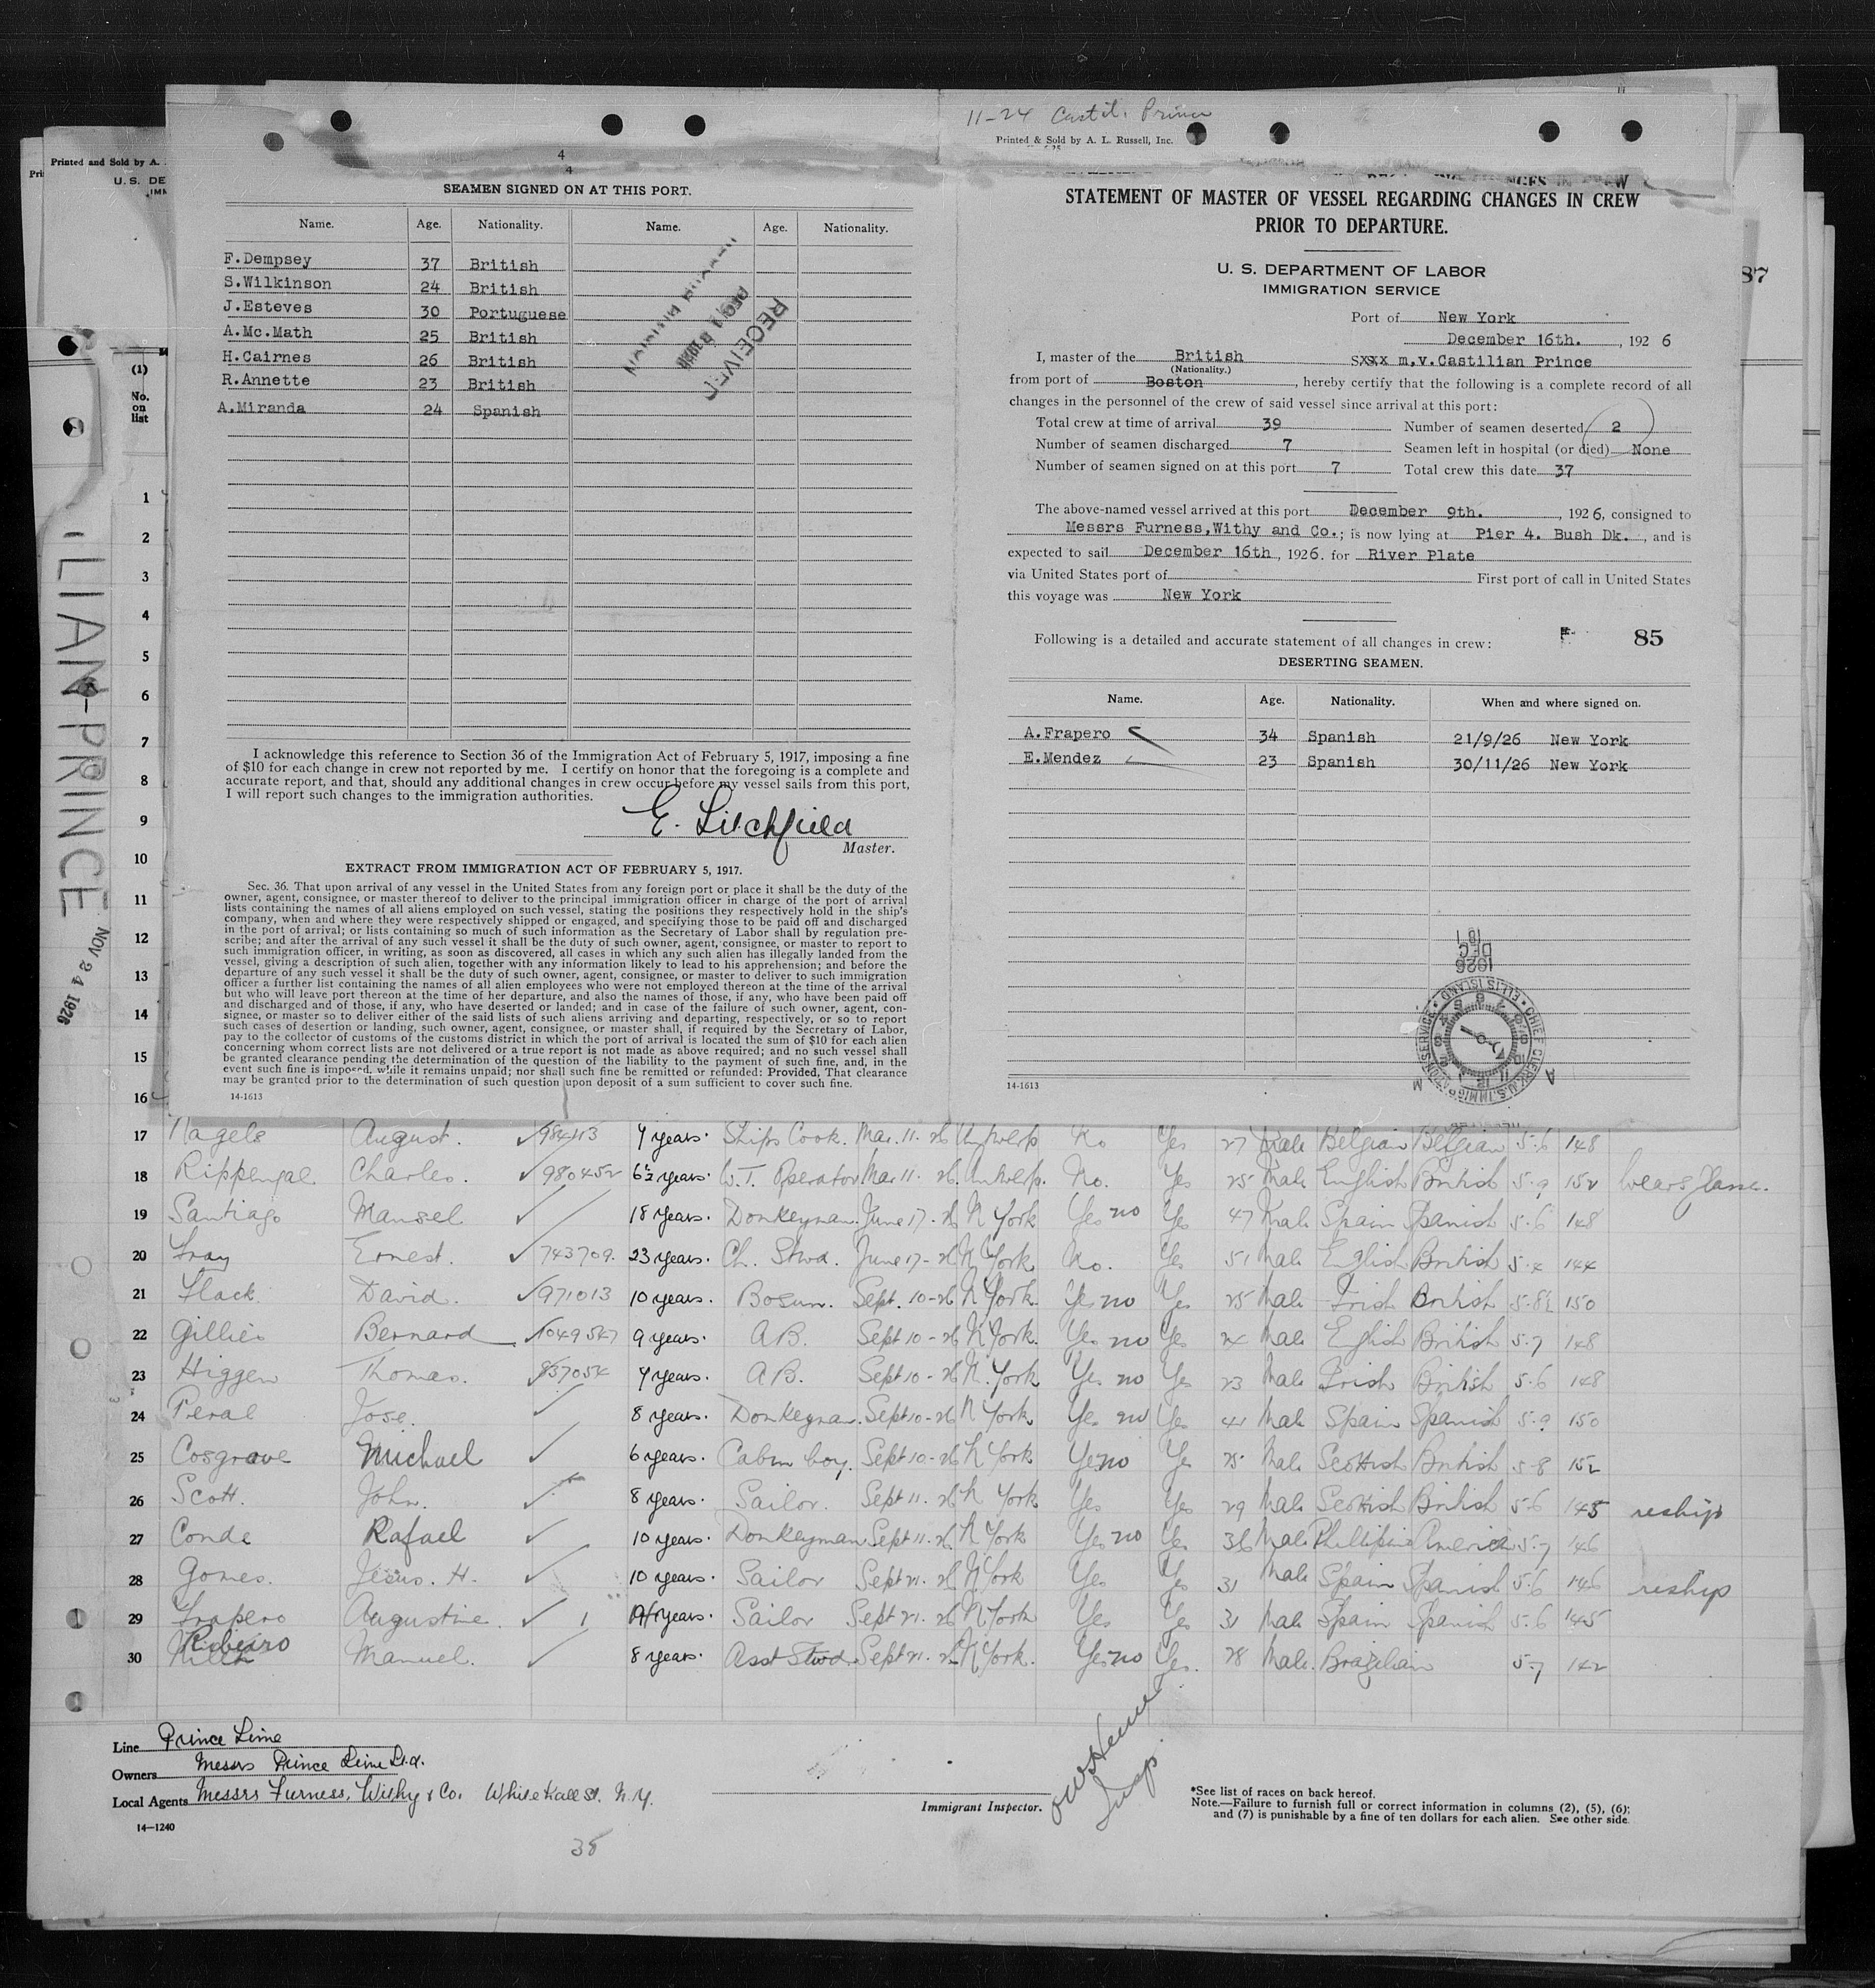 11-24 Castil. Prince
Printed & Sold by A. L. Russell, Inc.
Printed and Sold by A.
U. S. DE
4
4
SEAMEN SIGNED ON AT THIS PORT.
Name. Age. Nationality. Name. Age. Nationality.
F.Dempsey 37 British
S.Wilkinson 24 British
J.Esteves 30 Portuguese
A.Mc.Math 25 British
H.Cairnes 26 British
R.Annette 23 British
A.Miranda 24 Spanish
RECEIVED
I acknowledge this reference to Section 36 of the Immigration Act of February 5, 1917, imposing a fine
of $10 for each change in crew not reported by me. I certify on honor that the foregoing is a complete and
accurate report, and that, should any additional changes in crew occur before my vessel sails from this port,
I will report such changes to the immigration authorities.
E. Litchfield
Master.
EXTRACT FROM IMMIGRATION ACT OF FEBRUARY 5, 1917.
Sec. 36. That upon arrival of any vessel in the United States from any foreign port or place it shall be the duty of the
owner, agent, consignee, or master thereof to deliver to the principal immigration officer in charge of the port of arrival
lists containing the names of all aliens employed on such vessel, stating the positions they respectively hold in the ship's
company, when and where they were respectively shipped or engaged, and specifying those to be paid off and discharged
in the port of arrival; or lists containing so much of such information as the Secretary of Labor shall by regulation pre-
scribe; and after the arrival of any such vessel it shall be the duty of such owner, agent, consignee, or master to report to
such immigration officer, in writing, as soon as discovered, all cases in which any such alien has illegally landed from the
vessel, giving a description of such alien, together with any information likely to lead to his apprehension; and before the
departure of any such vessel it shall be the duty of such owner, agent, consignee, or master to deliver to such immigration
officer a further list containing the names of all alien employees who were not employed thereon at the time of the arrival
but who will leave port thereon at the time of her departure, and also the names of those, if any, who have been paid off
and discharged and of those, if any, who have deserted or landed; and in case of the failure of such owner, agent, con-
signee, or master so to deliver either of the said lists of such aliens arriving and departing, respectively, or so to report
such cases of desertion or landing, such owner, agent, consignee, or master shall, if required by the Secretary of Labor,
pay to the collector of customs of the customs district in which the port of arrival is located the sum of $10 for each alien
concerning whom correct lists are not delivered or a true report is not made as above required; and no such vessel shall
be granted clearance pending the determination of the question of the liability to the payment of such fine, and, in the
event such fine is imposed, while it remains unpaid; nor shall such fine be remitted or refunded: Provided, That clearance
may be granted prior to the determination of such question upon deposit of a sum sufficient to cover such fine.
14-1613
STATEMENT OF MASTER OF VESSEL REGARDING CHANGES IN CREW
PRIOR TO DEPARTURE.
U. S. DEPARTMENT OF LABOR
IMMIGRATION SERVICE
Port of New York
December 16th. , 192 6
I, master of the British Sxxx m.v.Castilian Prince
(Nationality.)
from port of Boston , hereby certify that the following is a complete record of all
changes in the personnel of the crew of said vessel since arrival at this port:
Total crew at time of arrival 39 Number of seamen deserted 2
Number of seamen discharged 7 Seamen left in hospital (or died) None
Number of seamen signed on at this port 7 Total crew this date 37
The above-named vessel arrived at this port December 9th. , 192 6, consigned to
Messrs Furness,Withy and Co.; is now lying at Pier 4. Bush Dk. , and is
expected to sail December 16th , 192 6. for River Plate
via United States port of First port of call in United States
this voyage was New York
Following is a detailed and accurate statement of all changes in crew: 85
DESERTING SEAMEN.
Name. Age. Nationality. When and where signed on.
A.Frapero 34 Spanish 21/9/26 New York
E.Mendez 23 Spanish 30/11/26 New York
DEC 1926
CHIEF CLERK U.S. IMMIGRATION SERVICE ELLIS ISLAND
14-1613
87
LIAN-PRINCE
NOV 24 1926
(1)
No.
on
list
1
2
3
4
5
6
7
8
9
10
11
12
13
14
15
16
17 Nagels August. 984113 4 years. Ships Cook. Mar. 11. 26 Antwerp No Yes 27 Male Belgian Belgian 5.6 148
18 Rippengal Charles. 980452 6½ years. W.T. Operator Mar 11. 26. Antwerp. No. Yes 25 Male English British 5.9 152 Wears Glasses.
19 Santiago Manuel 18 years. Donkeyman. June 17. 26 N York Yes no Yes 47 Male Spain Spanish 5.6 148
20 Ernest. 743709. 23 years. Ch. Stwd. June 17-26 N York No. Yes 51 Male English British 5.4 144
21 Flack David. 971013 10 years. Bosun. Sept. 10-26 N York. Yes no Yes 25 Male Irish British 5.8½ 150
22 Gillies Bernard 1049547 9 years. A B. Sept 10-26 N York. Yes no Yes 24 Male English British 5.7 148
23 Higgen Thomas. 837054 4 years. A B. Sept 10-26 N. York Yes no Yes 23 Male Irish British 5.6 148
24 Peral Jose. 8 years. Donkeyman. Sept 10-26 N York Yes no Yes 41 Male Spain Spanish 5.9 150
25 Cosgrove Michael 6 years. Cabin boy. Sept 10-26 N York Yes no Yes 25 Male Scottish British 5.8 152
26 Scott. John. 8 years. Sailor. Sept 11. 26 N York Yes Yes 29 Male Scottish British 5.6 145 reship
27 Conde Rafael 10 years. Donkeyman Sept 11. 26 N York Yes no Yes 36 Male Phillipine America 5.7 146
28 Gomes. Jesus. H. 10 years. Sailor Sept 21. 26 N York Yes Yes 31 Male Spain Spanish 5.6 146 reship
29 Frapero Augustine. 1 years. Sailor Sept 21. 26 N York Yes Yes 31 Male Spain Spanish 5.6 145
30 Ribeiro Manuel. 8 years. Asst Stwd. Sept 21. 26 N York. Yes no Yes. 28 Male. Brazilian 5.7 142
Line Prince Line
Owners Messrs Prince Line Ltd.
Local Agents Messrs Furness, Withy & Co. Whitehall St. N.Y.
14-1240
38
Immigrant Inspector.
Insp.
*See list of races on back hereof.
Note.—Failure to furnish full or correct information in columns (2), (5), (6);
and (7) is punishable by a fine of ten dollars for each alien. See other side.